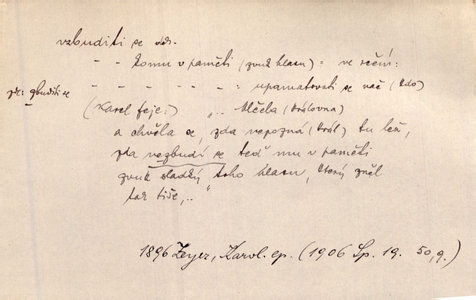 vzbuditi se vid.
- - komu v paměti (zvuk hlasu) = ve rčení:
zř: zbuditi se - - - - - = upamatovati se nač (kdo)
(Karel feje:) „.. Mlčela (královna)
a chvěla se, zda nepozná (král) tu lež,
zda nezbudí se teď mu v paměti
zvuk sladký toho hlasu, který zněl
tak tiše,..
1896 Zeyer, Karol. ep. (1906 Sp. 19. 50,9.)